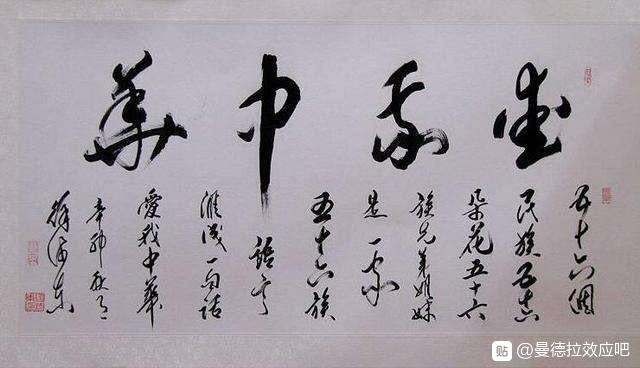 愛我中華
五十六個
民族五十六
朵花五十六
族兄弟姐妹
是一家
五十六族
語言
滙成一句話
愛我中華
辛卯秋月
贴 @曼德拉效应吧